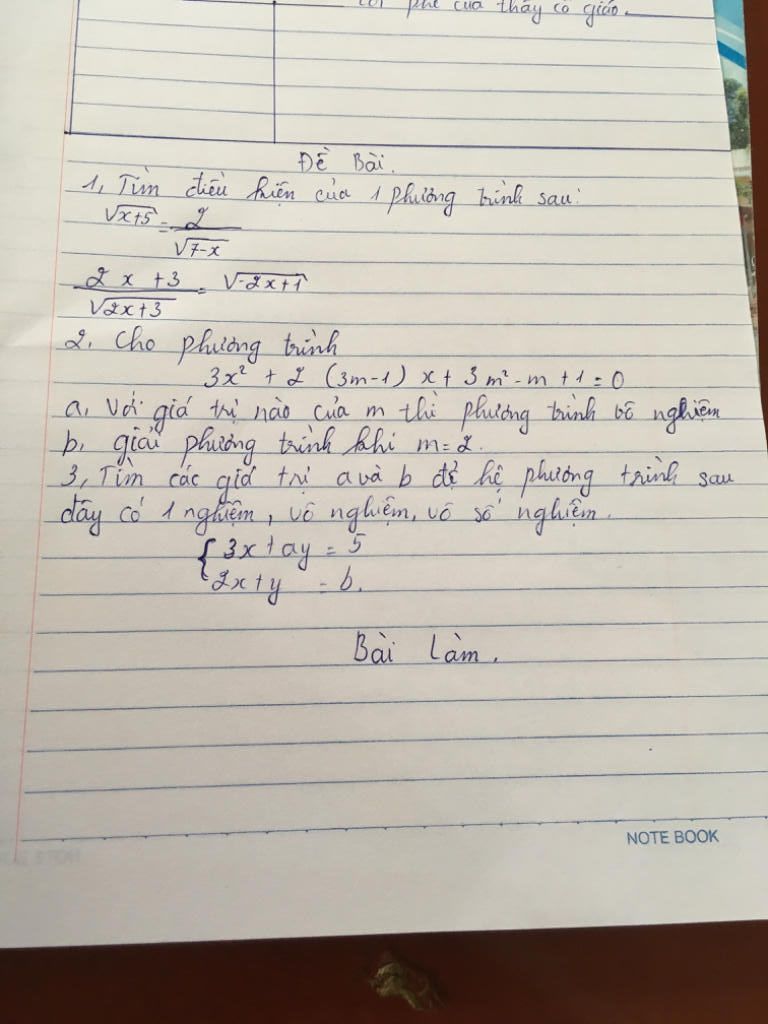 lời phê của thầy cô giáo.
Đề Bài.
1, Tìm điều kiện của 1 phương trình sau:
√x+5 = 2/√7-x
2x+3/√2x+3 = √-2x+1
2, Cho phương trình
3x² + 2 (3m-1) x + 3m² - m + 1 = 0
a, Với giá trị nào của m thì phương trình vô nghiệm
b, giải phương trình khi m = 2.
3, Tìm các giá trị a và b để hệ phương trình sau
đây có 1 nghiệm, vô nghiệm, vô số nghiệm.
{ 3x + ay = 5
2x + y = b.
Bài Làm.
NOTE BOOK